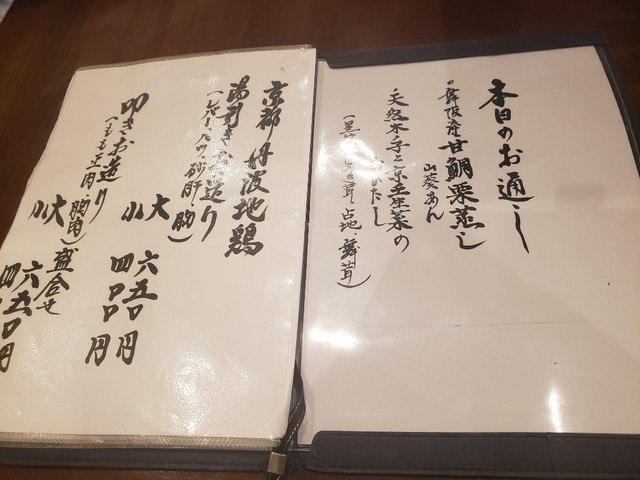 本日のお通し
舞阪産甘鯛栗蒸し
山葵あん
天然木子と京壬生菜の
おひたし
占地、舞茸)
京都丹波地鶏
湯引きお造り
(レバー、ハツ、砂肝、胸)
大 六五〇円
小 四〇〇円
叩きお造り
(もも正肉、胸肉)盛合せ
大 六五〇円
小 四〇〇円